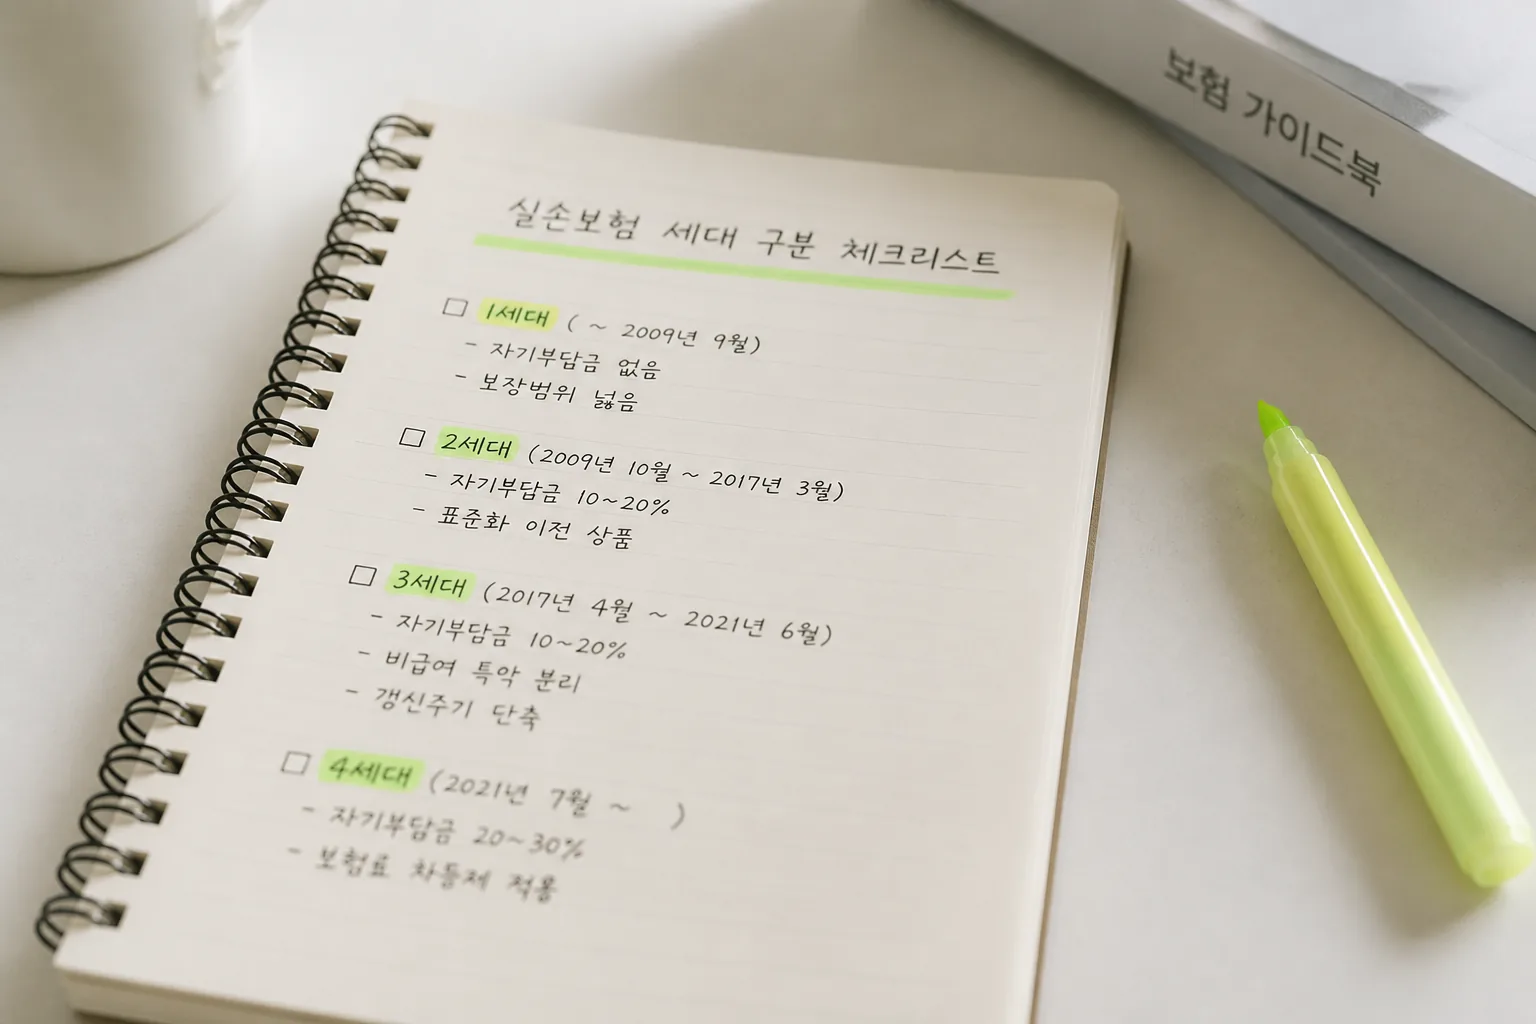 보험 가이드북
실손보험 세대 구분 체크리스트
□ 1세대 ( ~ 2009년 9월)
- 자기부담금 없음
- 보장범위 넓음
□ 2세대 (2009년 10월 ~ 2017년 3월)
- 자기부담금 10~20%
- 표준화 이전 상품
□ 3세대 (2017년 4월 ~ 2021년 6월)
- 자기부담금 10~20%
- 비급여 특약 분리
- 갱신주기 단축
□ 4세대 (2021년 7월 ~ )
- 자기부담금 20~30%
- 보험료 차등제 적용